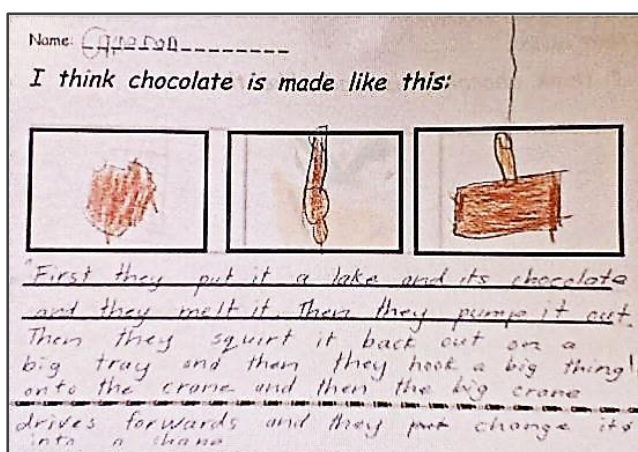 Name:
I think chocolate is made like this:
"First they put it a lake and its chocolate
and they melt it. Then they pump it out.
Then they squirt it back out on a
big tray and then they hook a big thing
onto the crane and then the big crane
drives forwards and they put change its
into a shape